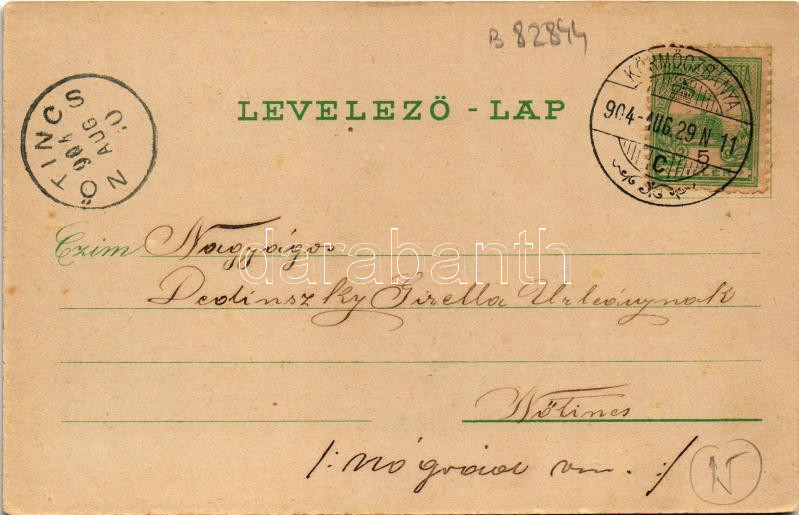 B 82844
LEVELEZŐ - LAP
NŐTINCS
904
AUG
KÖRMÖCZBÁNYA
904-AUG.29 N 11
C
5
Czim Nagyságos
Dedinszky Gizella Urleánynak
darabanth
Nőtincs
/: Nógrád vm. :/
N